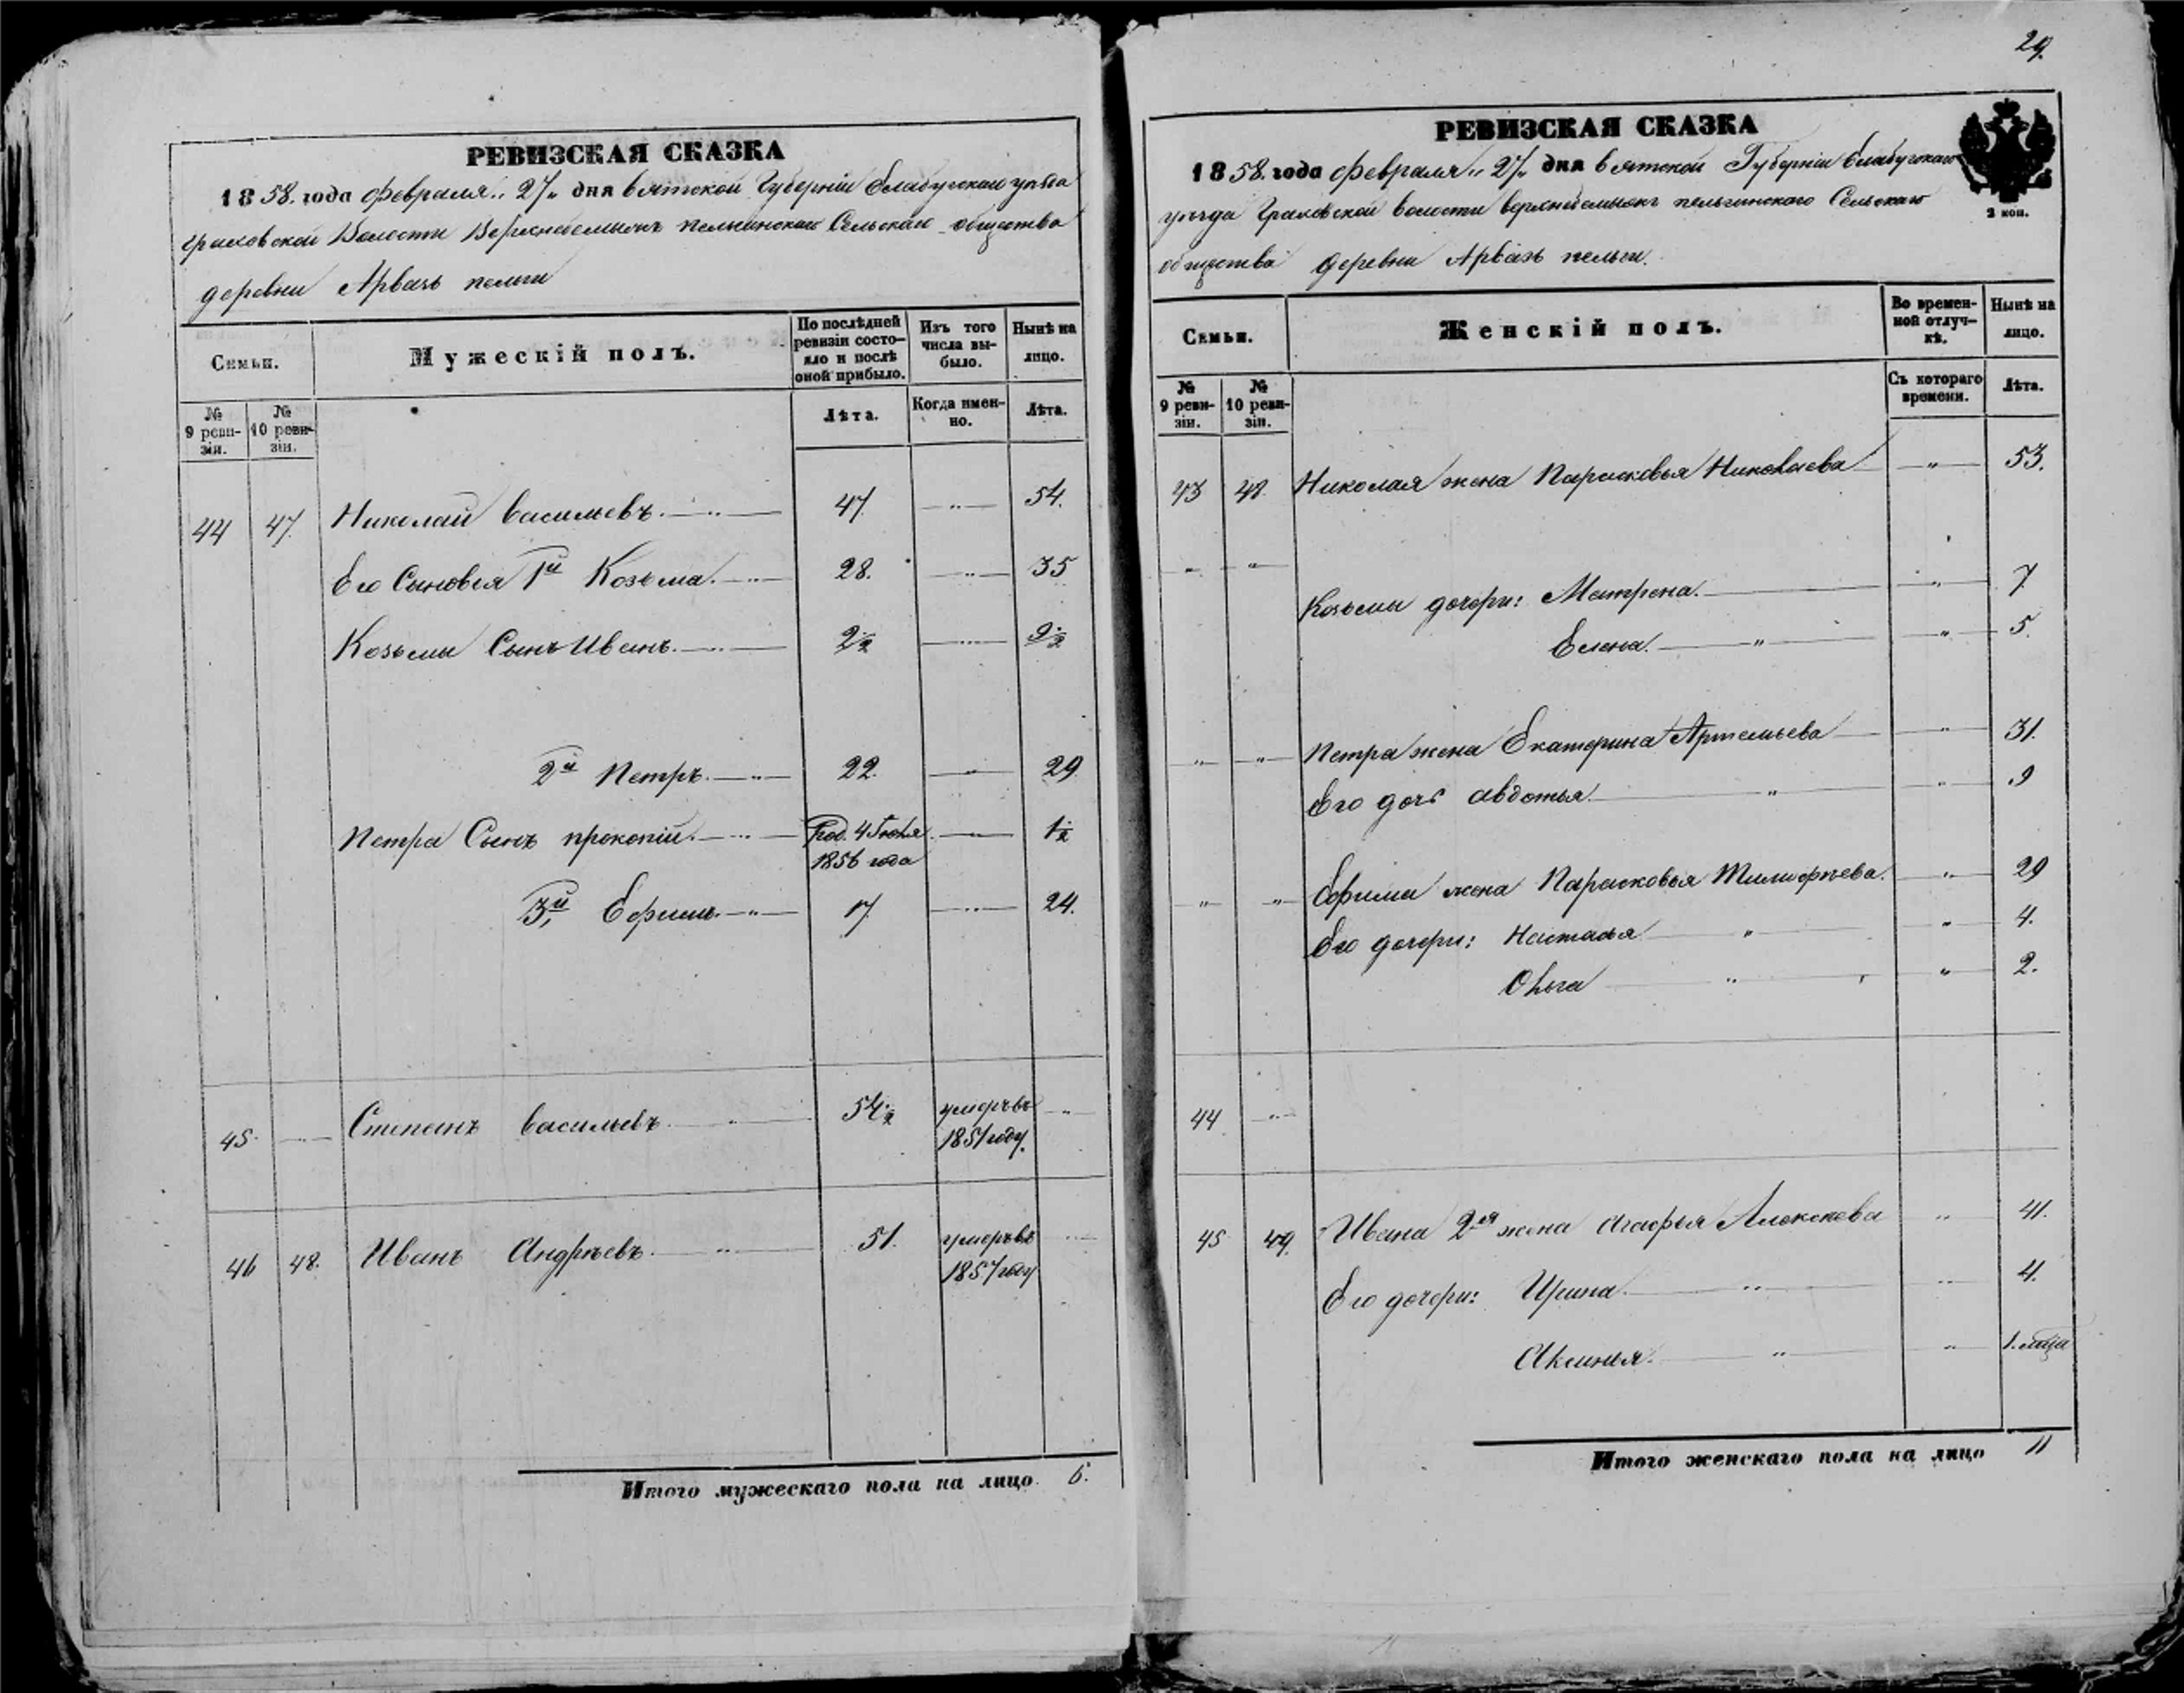 29.
РЕВИЗСКАЯ СКАЗКА
1858. года февраля „ 27 „ дня вятской Губерніи Елабугскаго уѣзда
Граховской Волости Верхне пельгинскаго Сельскаго общества
деревни Арвазь пельги
Семьи.
Мужескій полъ.
По послѣдней ревизіи состояло и послѣ оной прибыло.
Изъ того числа выбыло.
Нынѣ на лицо.
№ 9 ревизіи.
№ 10 ревизіи.
Лѣта.
Когда именно.
Лѣта.
44 47. Николай васильевъ. 47. „ 54.
Его Сыновья 1й Козьма. 28. „ 35
Козьмы Сынъ Иванъ. 2 1/2 „ 9 1/2
2й Петръ. 22. „ 29
Петра Сынъ прокопій. Род. 4 Іюля „ 1 1/2
1856 года
3й Ефимъ. 17. „ 24.
45. „ Степанъ васильевъ „ 54 1/2 умеръ въ „
1851 году.
46 48. Иванъ Андрѣевъ. „ 51. умеръ въ „
1857 году
Итого мужескаго пола на лицо 5.
РЕВИЗСКАЯ СКАЗКА
1858. года февраля „ 27 „ дня вятской Губерніи Елабугскаго
уѣзда Граховской волости пельгинскаго Сельскаго
общества деревни Арвазь пельги.
2 коп.
Семьи.
Женскій полъ.
Во временной отлучкѣ.
Нынѣ на лицо.
№ 9 ревизіи.
№ 10 ревизіи.
Съ котораго времени.
Лѣта.
43 48. Николая жена Парасковья Николаева „ 53.
„ „ Козьмы дочери: Матрена. „ 7
Елена. „ „ 5.
„ „ Петра жена Екатерина Артемьева „ 31.
Его дочь авдотья. „ „ 9
„ „ Ефима жена Парасковья Тимофѣева. „ 29
Его дочери: Наталья „ „ 4.
Ольга „ „ 2.
44 „
45 49. Ивана 2я жена Агафья Алексѣева „ 41.
Его дочери: Ирина. „ „ 4.
Аксинья. „ „ 1. мѣсяца
Итого женскаго пола на лицо 11